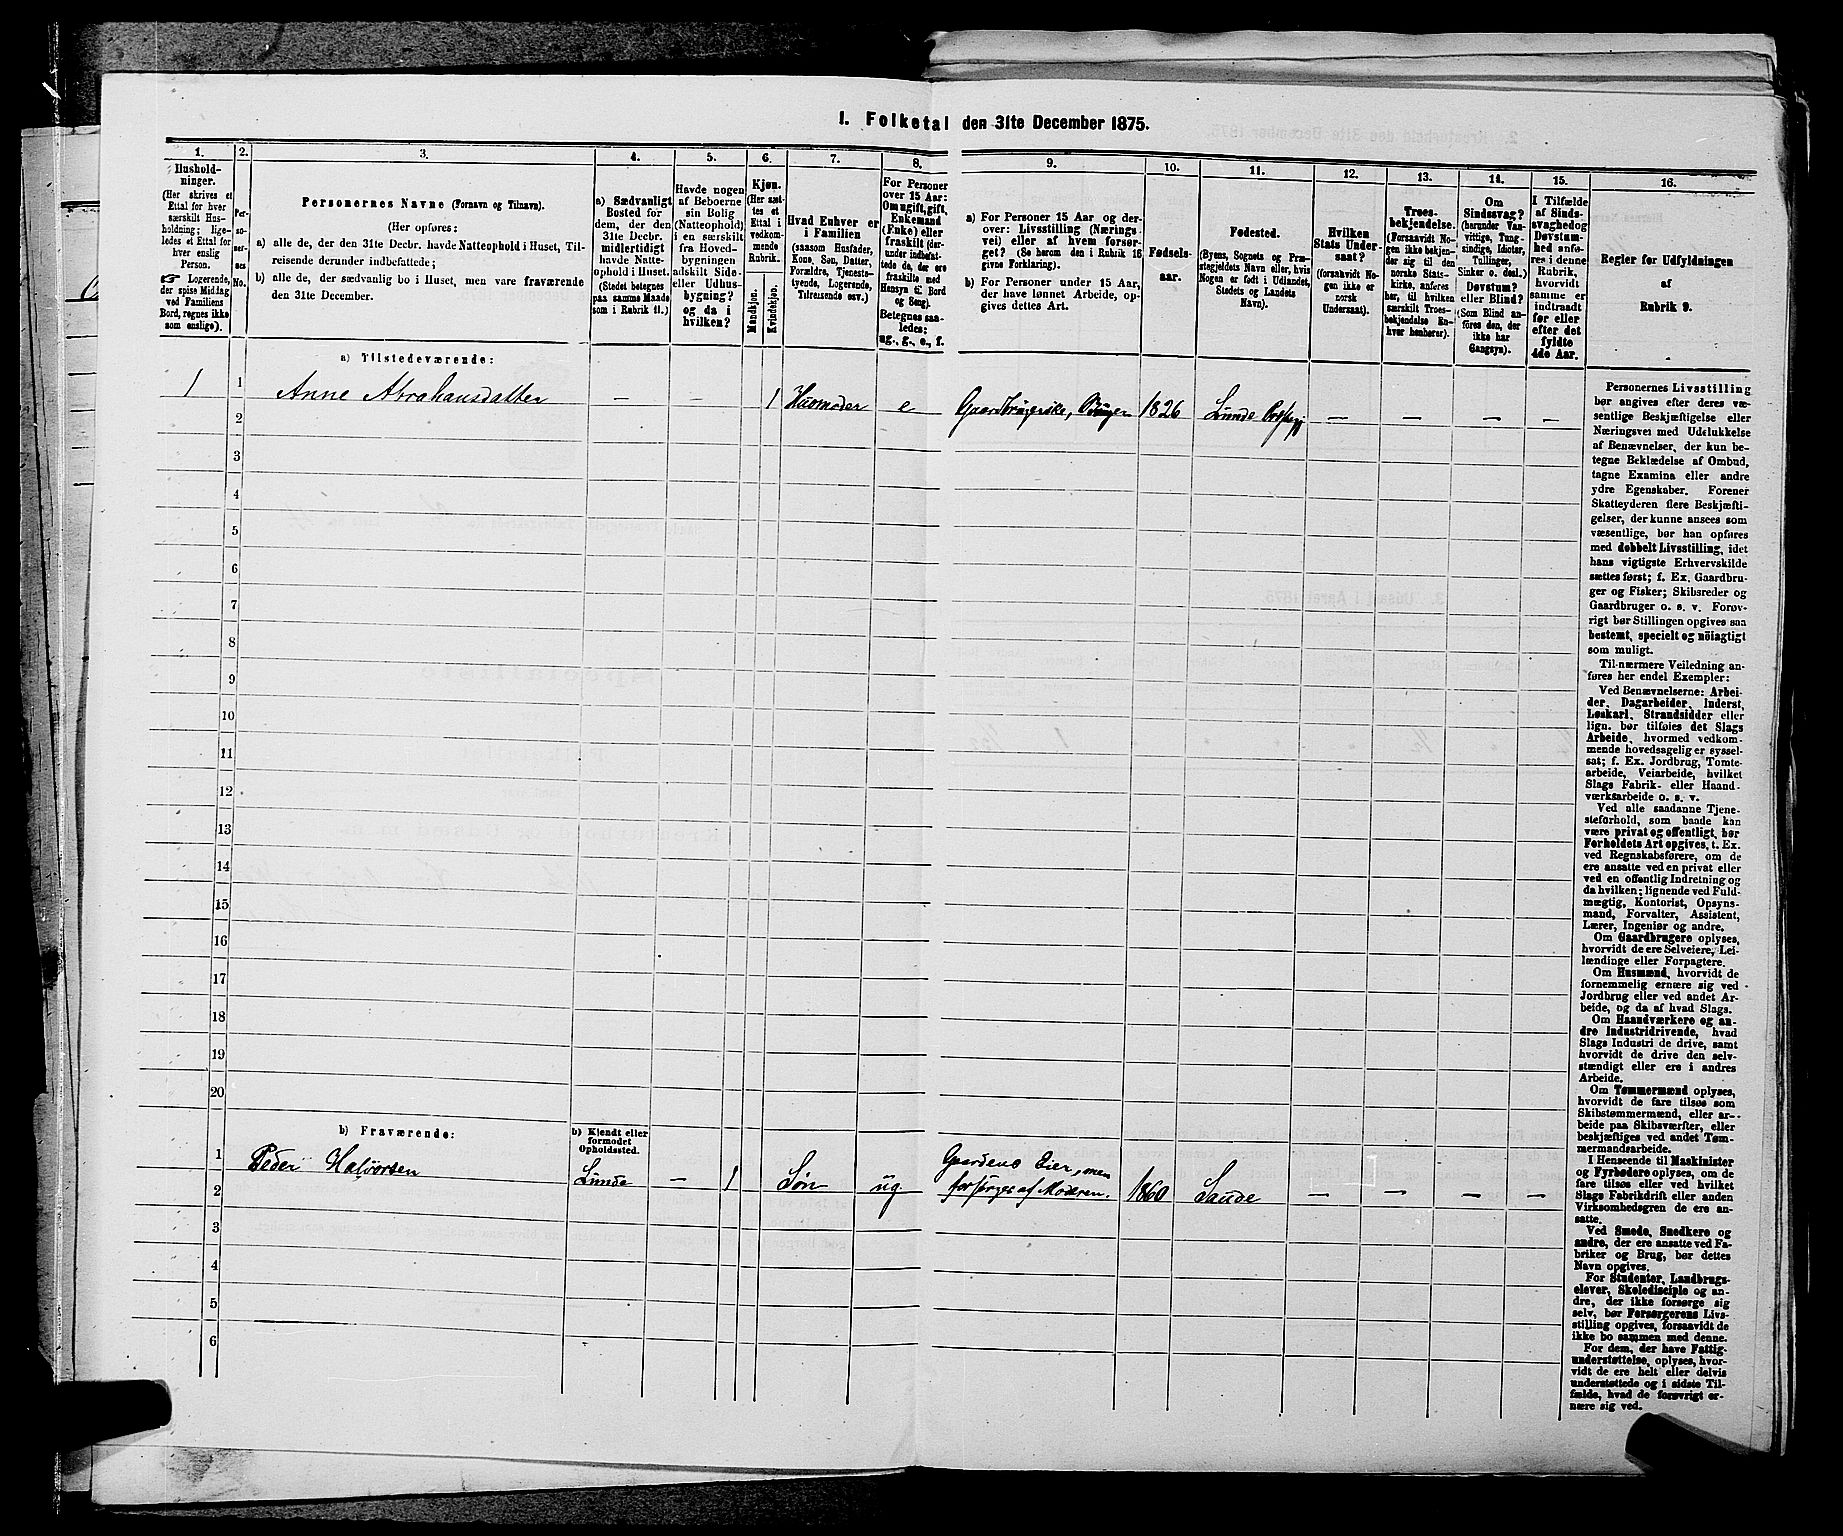 1. Folketal den 31te December 1875.
1.
2.
3.
4.
5.
6.
7.
8.
9.
10.
11.
12.
13.
14.
15.
16.
Hushold-
ninger.
(Her skrives et
Ettal for hver
særskilt Hus-
holdning; lige-
ledes et Ettal for
hver enslig
Person.
☞ Logerende,
der spise Middag
ved Familiens
Bord, regnes ikke
som enslige).
Per-
so-
ner-
nes
No.
Personernes Navne (Fornavn og Tilnavn).
(Her opføres:
a) alle de, der den 31te Decbr. havde Natteophold i Huset, Til-
reisende derunder indbefattede;
b) alle de, der sædvanlig bo i Huset, men vare fraværende
den 31te December.
a) Sædvanligt
Bosted for
dem, der den
31te Decbr.
midlertidigt
havde Natte-
ophold i Huset.
(Stedet betegnes
paa samme Maade
som i Rubrik 11.)
Havde nogen
af Beboerne
sin Bolig
(Natteophold)
i en særskilt
fra Hoved-
bygningen
adskilt Side-
eller Udhus-
bygning?
og da i
hvilken?
Kjøn.
(Her sæt-
tes et
Ettal i
vedkom-
mende
Rubrik.
Mandkjøn.
Kvindekjøn.
Hvad Enhver er
i Familien
(saasom Husfader,
Kone, Søn, Datter,
Forældre, Tjeneste-
tyende, Logerende,
Tilreisende osv.)
For Personer
over 15 Aar:
Om ugift, gift,
Enkemand
(Enke) eller
fraskilt (der-
under indbefat-
tede de, der ere
fraskilte med
Hensyn til Bord
og Seng).
Betegnes saa-
ledes:
ug., g., e., f.
a) For Personer 15 Aar og der-
over: Livsstilling (Nærings-
vei) eller af hvem forsør-
get? (Se herom den i Rubrik 16
givne Forklaring).
b) For Personer under 15 Aar,
der have lønnet Arbeide, op-
gives dettes Art.
Fødsels-
aar.
Fødested.
(Byens, Sognets og Præ-
stegjeldets Navn eller, hvis
Nogen er født i Udlandet,
Stedets og Landets
Navn).
Hvilken
Stats Under-
saat?
(forsaavidt No-
gen ikke er
norsk
Undersaat).
Troes-
bekjendelse.
(Forsaavidt No-
gen ikke bekjen-
der sig til den
norske Stats-
kirke, anføres
her, til hvilken
særskilt Troes-
bekjendelse En-
hver henhører).
Om
Sindssvag?
(herunder Van-
vittige, Tung-
sindige, Idioter,
Tullinger,
Sinker o. desl.)
Døvstum?
eller Blind?
(Som Blind an-
føres den, der
ikke har
Gangsyn).
I Tilfælde
af Sinds-
svaghed og
Døvstum-
hed anfø-
res i denne
Rubrik,
hvorvidt
samme er
indtraadt
før eller
efter det
fyldte
4de Aar.
Regler for Udfyldningen
af
Rubrik 9.
a) Tilstedeværende:
1 1 Anne Abrahansdatter — — 1 Husmoder e Gaardbrugerske, 1826 Lunde — — — —
2
3
4
5
6
7
8
9
10
11
12
13
14
15
16
17
18
19
20
b) Fraværende:
b) Kjendt eller
formodet
Opholdssted.
1 Peder Halvorsen Lunde — 1 Søn ug Gaardens Eier, men
forsørges af Moderen. 1860 Saude — — — —
2
3
4
5
6
Personernes Livsstilling
bør angives efter deres væ-
sentlige Beskjæftigelse eller
Næringsvei med Udelukkelse
af Benævnelser, der kun be-
tegne Beklædelse af Ombud,
tagne Examina eller andre
ydre Egenskaber. Forener
Skatteyderen flere Beskjæfti-
gelser, der kunne ansees som
væsentlige, bør han opføres
med dobbelt Livsstilling, idet
hans vigtigste Erhvervskilde
sættes først; f. Ex. Gaardbru-
ger og Fisker; Skibsreder og
Gaardbruger o. s. v. Forøv-
rigt bør Stillingen opgives saa
bestemt, specielt og nöiagtigt
som muligt.
Til nærmere Veiledning an-
føres her endel Exempler:
Ved Benævnelserne: Arbei-
der, Dagarbeider, Inderst,
Løskarl, Strandsidder eller
lign. bør tilføies det Slags
Arbeide, hvormed vedkom-
mende hovedsagelig er syssel-
sat; f. Ex. Jordbrug, Tomte-
arbeide, Veiarbeide, hvilket
Slags Fabrik- eller Haand-
værksarbeide o. s. v.
Ved alle saadanne Tjene-
steforhold, som baade kan
være privat og offentligt, bør
Forholdets Art opgives, t. Ex.
ved Regnskabsførere, om de
ere ansatte ved en privat eller
ved en offentlig Indretning og
da hvilken; lignende ved Fuld-
mægtig, Kontorist, Opsyns-
mand, Forvalter, Assistent,
Lærer, Ingeniør og andre.
Om Gaardbrugere oplyses,
hvorvidt de ere Selveiere, Lei-
lændinge eller Forpagtere.
Om Husmænd, hvorvidt de
fornemmelig ernære sig ved
Jordbrug eller ved andet Ar-
beide, og da af hvad Slags.
Om Haandværkere og an-
dre Industridrivende, hvad
Slags Industri de drive, samt
hvorvidt de drive den selv-
stændigt eller ere i andres
Arbeide.
Om Tømmermænd oplyses,
hvorvidt de fare tilsøs som
Skibstømmermænd, eller ar-
beide paa Skibsværfter, eller
beskjæftiges ved andet Tøm-
mermandsarbeide.
I Henseende til Maskinister
og Fyrbødere oplyses, om de
fare tilsøs eller ved hvilket
Slags Fabrikdrift eller anden
Virksomhedsgren de ere an-
satte.
Ved Smede, Snedkere og
andre, der ere ansatte ved Fa-
briker og Brug, bør dettes
Navn opgives.
For Studenter, Landbrugs-
elever, Skoledisciple og an-
dre, der ikke forsørge sig
selv, bør Forsørgerens Livs-
stilling opgives, forsaavidt de
ikke bo sammen med denne.
For dem, der have Fattig-
understøttelse, oplyses, hvor-
vidt de ere helt eller delvis
understøttede og i sidste Til-
fælde, hvad de forøvrigt er-
nære sig ved.